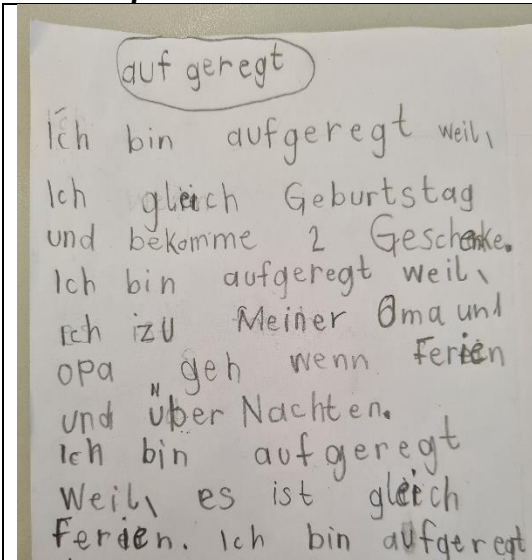 auf geregt
Ich bin aufgeregt weil,
Ich gleich Geburtstag
und bekomme 2 Geschenke.
Ich bin aufgeregt weil,
ich zu Meiner Oma und
opa geh wenn Ferien
und über Nachten.
Ich bin aufgeregt
Weil, es ist gleich
Ferien. Ich bin aufgeregt